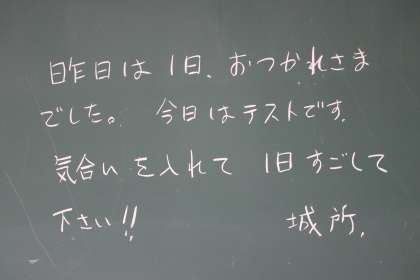 昨日は1日、おつかれさま
でした。 今日はテストです。
気合いを入れて 1日すごして
下さい!! 城所.